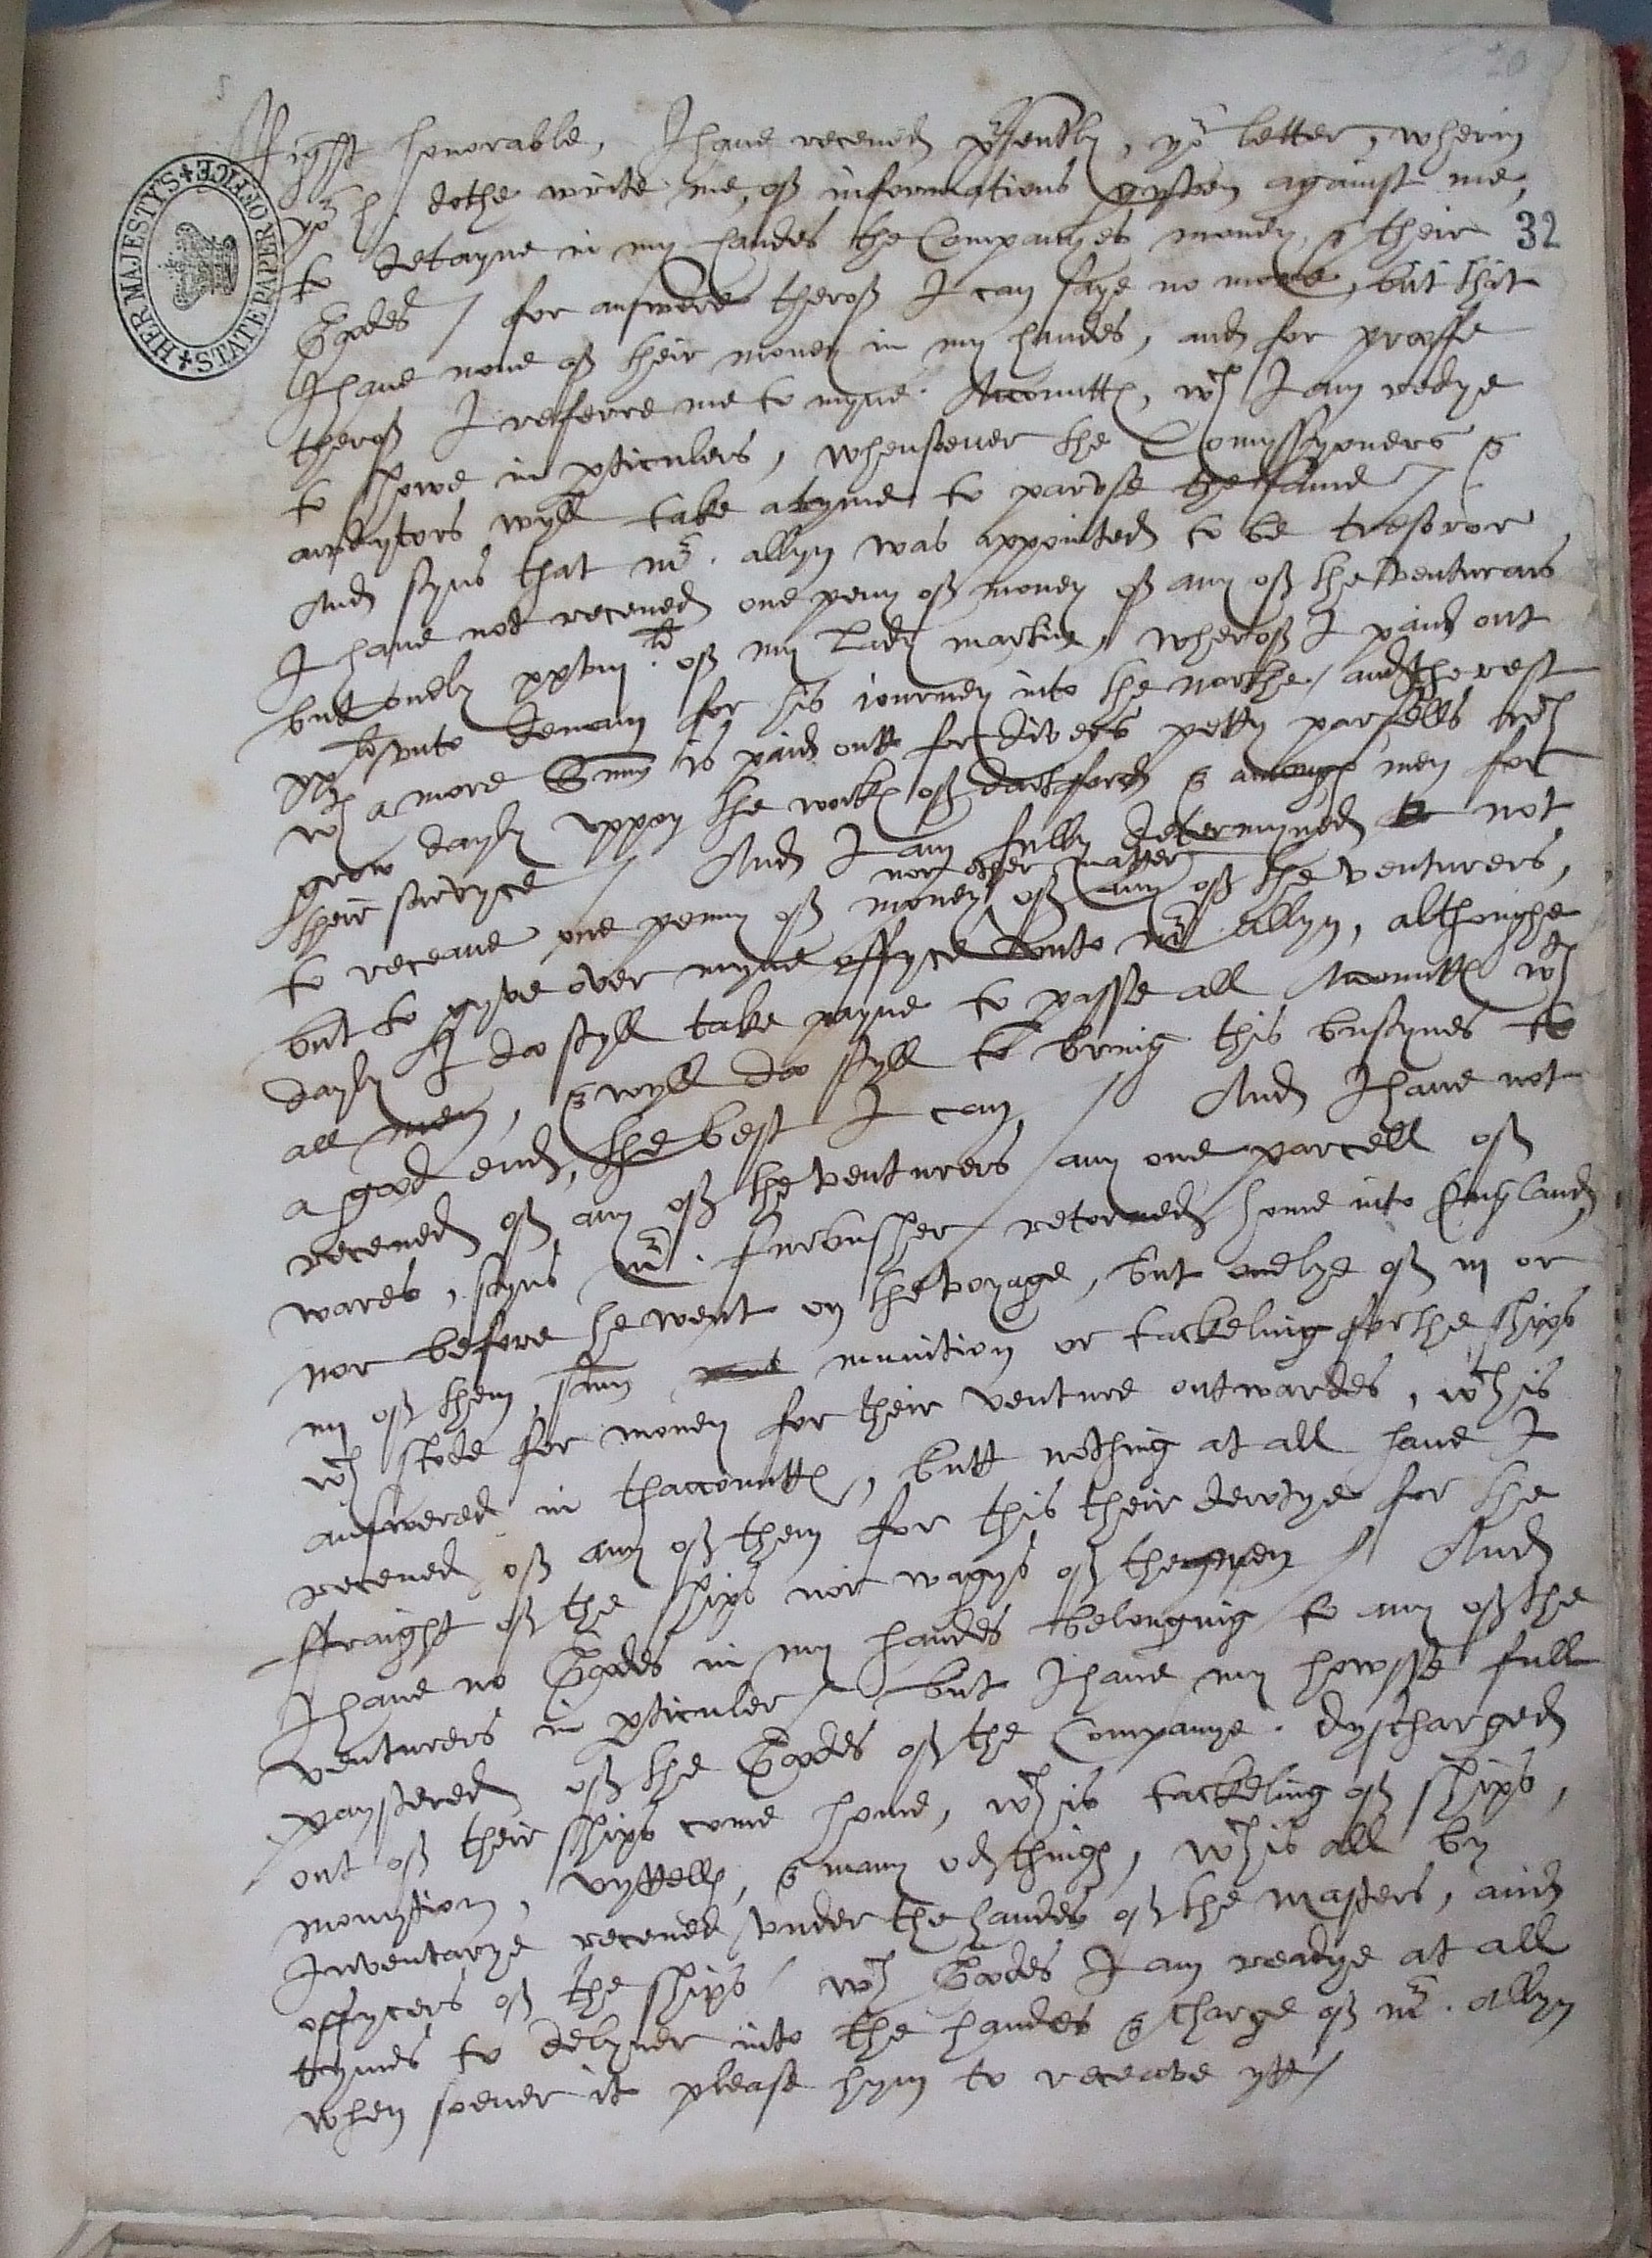 20
Right honorable, I have receued presently, yor letter, wherin
yor h. dothe write me, of informations gyven against me,
32
to detayne in my handes the Companyes money, & their
Goodes / for answere therof I can saye no more, but that
I have none of their money in my handes, and for prooffe
therof I referre me to myne Accomtts, wch I am redye
to showe in pticulers, whensoever the Comyssyoners &
awdytors wyll take atyme to parvse the same /
And syns that mr. allyn was appointed to be tresoror
I have not receued one peny of money of any of the venturars
but onely of my Lady martine, wherof I paid out
li vnto Denam for his iourney into the northe / and the rest
wth a more Som is paid outt for divers petty parsells wch
grow dayly vppon the works of dartford & amongs men for
their servyce / And I am fully determyned not
nor other matter
to receave one penny of money of any of the venturers,
but to gyve over myne offyce vnto mr allyn, althoughe
dayly I do styll take payne to passe all Accomtts wth
all men, & wyll do styll to bring this busynes to
a good end, the best I can / And I have not
receued of any of the venturers any one parcell of
wares, syns mr. furbusher retorned home into England,
nor before he went on the voyage, but onelye of iij or
iiij of them, som munition or tackeling for the ships
wch stode for money for their venture outwardes, wch is
answered in thaccomtts, butt nothing at all have I
receued of any of them for this their servyce for the
ffraight of the ships nor wagys of the men // And
I have no Goodes in my handes belonging to any of the
venturers in pticuler / but I have my howsse full
paystered of the Goodes of the Companye. dyscharged
out of their ships come home, wch is tackeling of ships,
monytion, vyttells, & many oth things, wch is all by
Inventarye receued vnder the handes of the masters, and
offycers of the ships / wch Goodes I am readye at all
tymes to delyuer into the handes & charge of mr. allyn
when soever it please hym to receave ytt /
HER MAJESTY'S STATE PAPER OFFICE